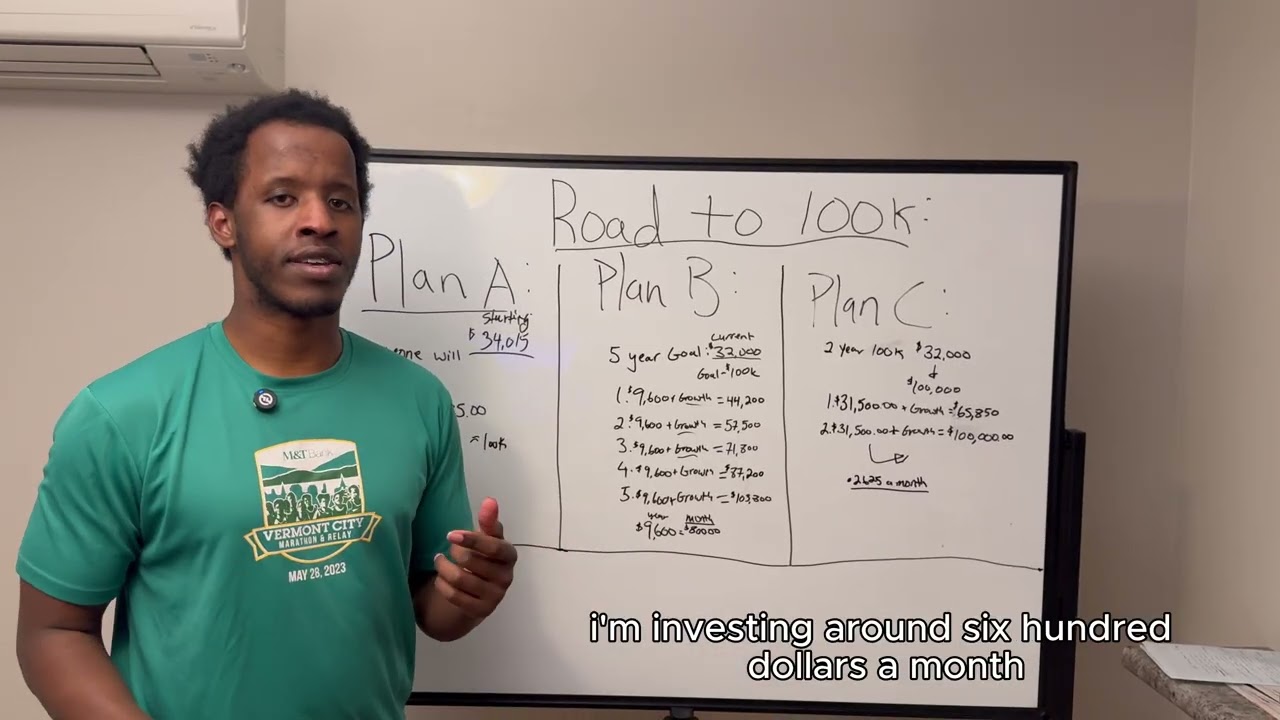 Road to 100K:
Plan A:
starting
$34,015
one will
5.00
≈ 100K
Plan B:
current
5 year Goal: $32,000
Goal - $100k
1. $9,600 + Growth = 44,200
2. $9,600 + Growth = 57,500
3. $9,600 + Growth = 71,800
4. $9,600 + Growth = $87,200
5. $9,600 + Growth = $103,800
year month
$9,600 = $80000
Plan C:
2 year 100k $32,000
$100,000
1. $31,500.00 + Growth = $65,850
2. $31,500.00 + Growth = $100,000.00
2625 a month
M&T Bank
VERMONT CITY
MARATHON & RELAY
MAY 28, 2023
i'm investing around six hundred
dollars a month